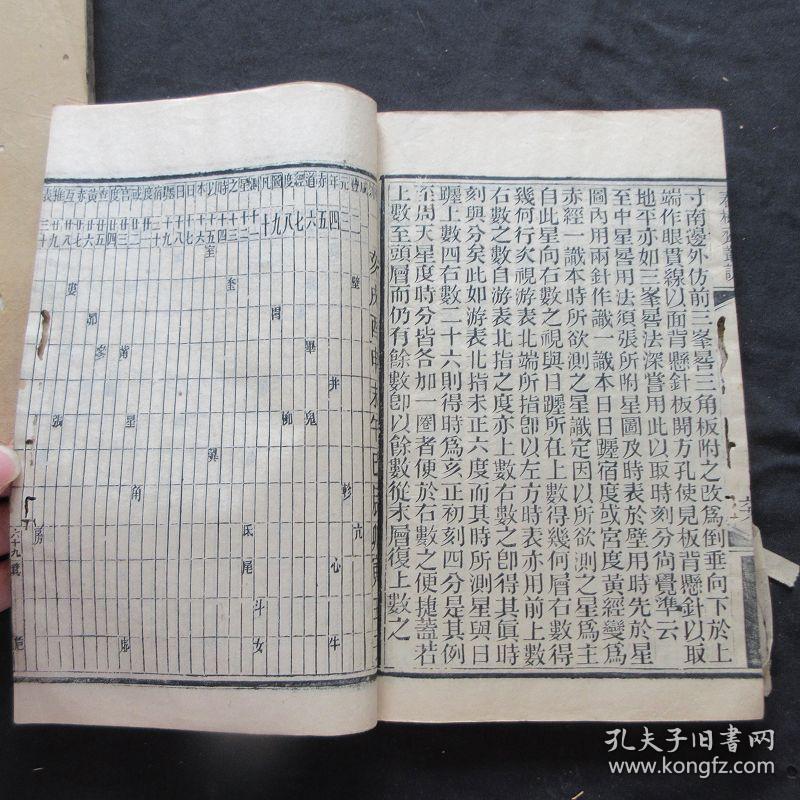 寸南邊外仿前三峯晷三角板附之改爲倒垂向下於上
端作眼貫線以面背懸針板開方孔使見板背懸針以取
地平亦如三峯晷法深嘗用此以取時刻分尙覺準云
至中星晷用法須張所附星圖及時表於壁用時先於星
圖內用兩針作識一識本日日躔宿度或宮度黃經變爲
赤經一識本時所欲測之星識定因以所欲測之星爲主
自此星向右數之視與日躔所在上數得幾何層右數得
幾何行次視游表北端所指卽以左方時表亦用前上數
右數之數自游表北指之度亦上數右數之卽得其眞時
刻與分矣此如游表北指未正六度而其時所測星與日
躔上數四右數二十六則得時爲亥正初刻四分是其例
至周天星度時分皆各加一圈者便於右數之便捷蓋若
上數至頭層而仍有餘數卽以餘數從末層復上數之
元年赤道經度圖凡測星之時以本日日躔宿度或宮度查黃赤互推表
二 三 四 五 六 七 八 九 十
十二 十三 十四 十五 十六 十七 十八 十九 二十
廿二 廿三 廿四 廿五 廿六 廿七 廿八 廿九 三十
壁
室
奎
婁
胃
昴
畢
觜
參
井
鬼
柳
星
張
翼
軫
角
亢
氐
房
心
尾
斗
牛
女
虛
六十九號
孔夫子旧书网
www.kongfz.com